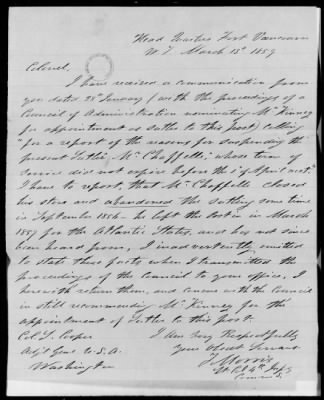 Head Quarters Fort Vancouver
W. T. March 15th 1859
Colonel,
I have received a communication from
you dated 28th January (with the proceedings of a
Council of Administration nominating Mr Kinney
for appointment as Sutler to this post) calling
"for a report of the reasons for suspending the
present Sutler Mr Chappelle, whose term of
service did not expire before the 1st of April next."
I have to report, that Mr Chappelle closed
his store and abandoned the Sutling some time
in September 1856 - he left the Post in March
1857 for the Atlantic States, and has not since
been heard from, I inadvertently omitted
to state these facts when I transmitted the
proceedings of the Council to your office, I
herewith return them, and concur with the Council
in still recommending Mr Kinney for the
appointment of Sutler to this post.
I am very Respectfully
Your Obedt Servant
Col. S. Cooper
Adjt Genl U.S.A.
Washington
T. Morris
Lt Col 4th Infy